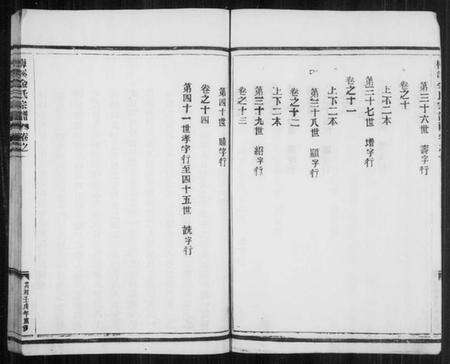 第三十六世 壽字行
卷之十
上下二本
第三十七世 增字行
卷之十一
上下二本
第三十八世 顯字行
卷之十二
上下二本
第三十九世 紹字行
卷之十三
第四十世 字行
卷之十四
第四十一世孝字行至四十五世 詵字行
氏宗譜 卷之